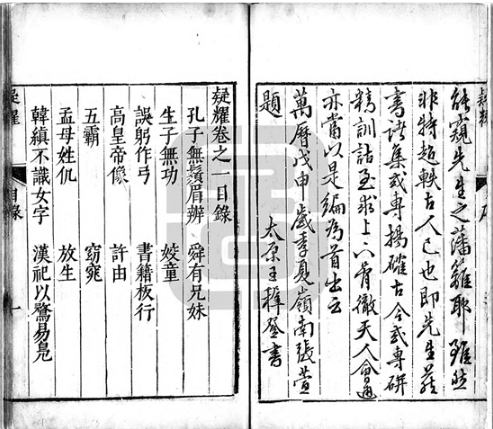 能窺先生之藩籬耶雖然
非特超軼古人已也即先生著
書諸集或專揚榷古今或專研
精訓詁至求上下貫徹天人會通
亦當以是編為首出云
萬曆戊申歲季夏嶺南張萱
題　太原王穉登書
疑耀卷之一目錄
孔子無鬚眉辨　舜有兄妹
生子無功　姣童
誤躬作弓　書籍板行
高皇帝像　許由
五霸　窈窕
孟母姓仉　放生
韓縝不識女字　漢祀以鷺易鳧
疑耀　目錄　一